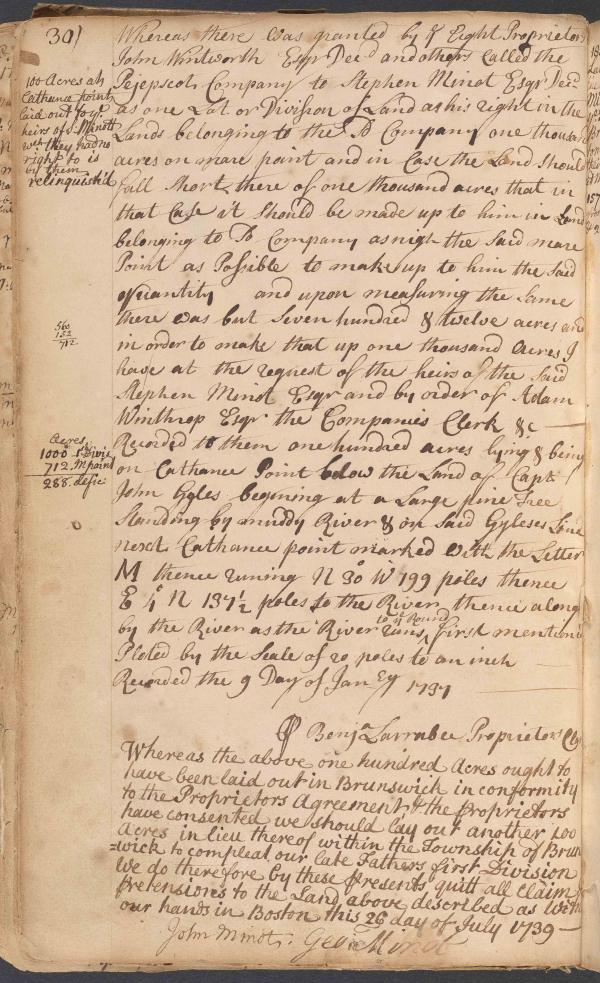 30)
Whereas there was granted by ye Eight Proprietors
John Wentworth Esqr Decd and others Called the
Pejepscot Company to Stephen Minot Esqr Decd
as one Lot or Division of Land as his right in the
Lands belonging to the sd Company one thousand
acres on mare point and in Case the Land should
fall short there of one thousand acres that in
that Case it should be made up to him in Land
belonging to sd Company as nigh the said mare
Point as Possible to make up to him the said
Quantity and upon measuring the same
there was but Seven hundred & twelve acres and
in order to make that up one thousand acres I
have at the request of the heirs of the said
Stephen Minot Esqr and by order of Adam
Winthrop Esqr the Companies Clerk &c
Recorded to them one hundred acres lying & being
on Cathance Point below the Land of Capt
John Gyles begining at a Large pine Tree
standing by muddy River & on said Gyleses Line
next Cathance point marked with the Letter
M thence runing N 30 W 199 poles thence
E ¼ N 137½ poles to the River thence along
by the River as the River runs to ye Bound first mention'd
Ploted by the Scale of 20 poles to an inch
Recorded the 9 Day of Janry 1737
Benja Larrabee Proprietors Cler
Whereas the above one hundred Acres ought to
have been laid out in Brunswick in conformity
to the Proprietors Agreement & the Proprietors
have consented we should lay out another 100
Acres in lieu thereof within the Township of Bruns
=wick to compleat our late Fathers first Division
We do therefore by these Presents quitt all Claim &
Pretensions to the Land above described as Witness
our hands in Boston this 26 day of July 1739
John Minot. Geo Minot
100 Acres at
Cathance point
laid out to ye
heirs of S. Minott
wch they had no
right to is
by them
relinquish'd
560
152
712
Acres
1000 1st Divis
712 M point
288 defic